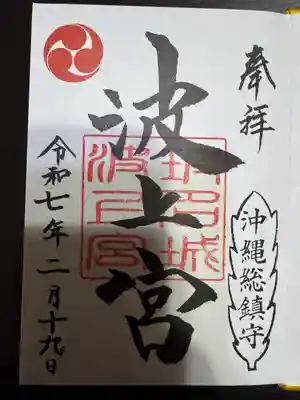 奉拝
沖縄総鎮守
波上宮
令和七年二月十九日